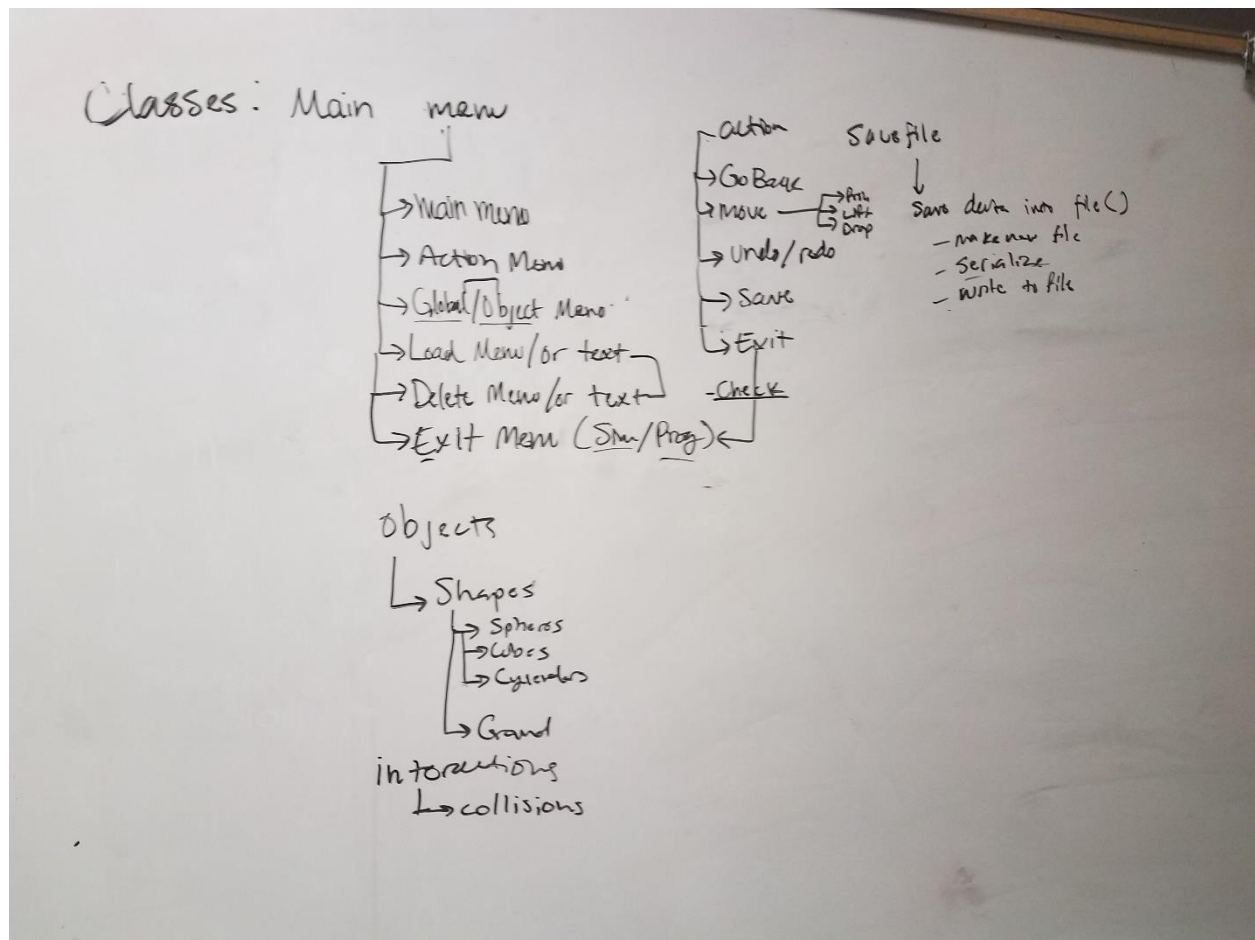 Classes: Main menu
Main menu
Action Menu
Global/Object Menu
Load Menu/or text
Delete Menu/or text
Exit Menu (Sim/Prog)
action
Go Back
Move
Push
Lift
Drop
Undo/redo
Save
Exit
-Check
Save file
Save data into file()
- make new file
- Serialize
- write to file
Objects
Shapes
Spheres
Cubes
Cylenders
interactions
collisions